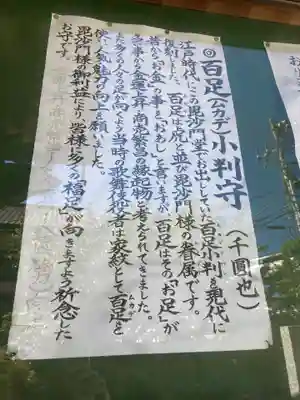 ◎百足(ムカデ)小判守
(千圓也)
江戸時代にこの毘沙門堂でお出ししていた百足小判を現代に
復刻しました。百足は虎と並び毘沙門様の眷属です。
昔から"お金"の事を"お足"と言いますが、百足はその"お足"が
多い事から金運上昇、商売繁昌の縁起物と考えられてきました。
また多くの人々の足が向くよう当時の歌舞伎役者は家紋として百足を
ムカデ
使い人気・能力の向上を願いました。
毘沙門様の御利益により、皆様に多くの"福足"が向きますよう祈念した
お守です。